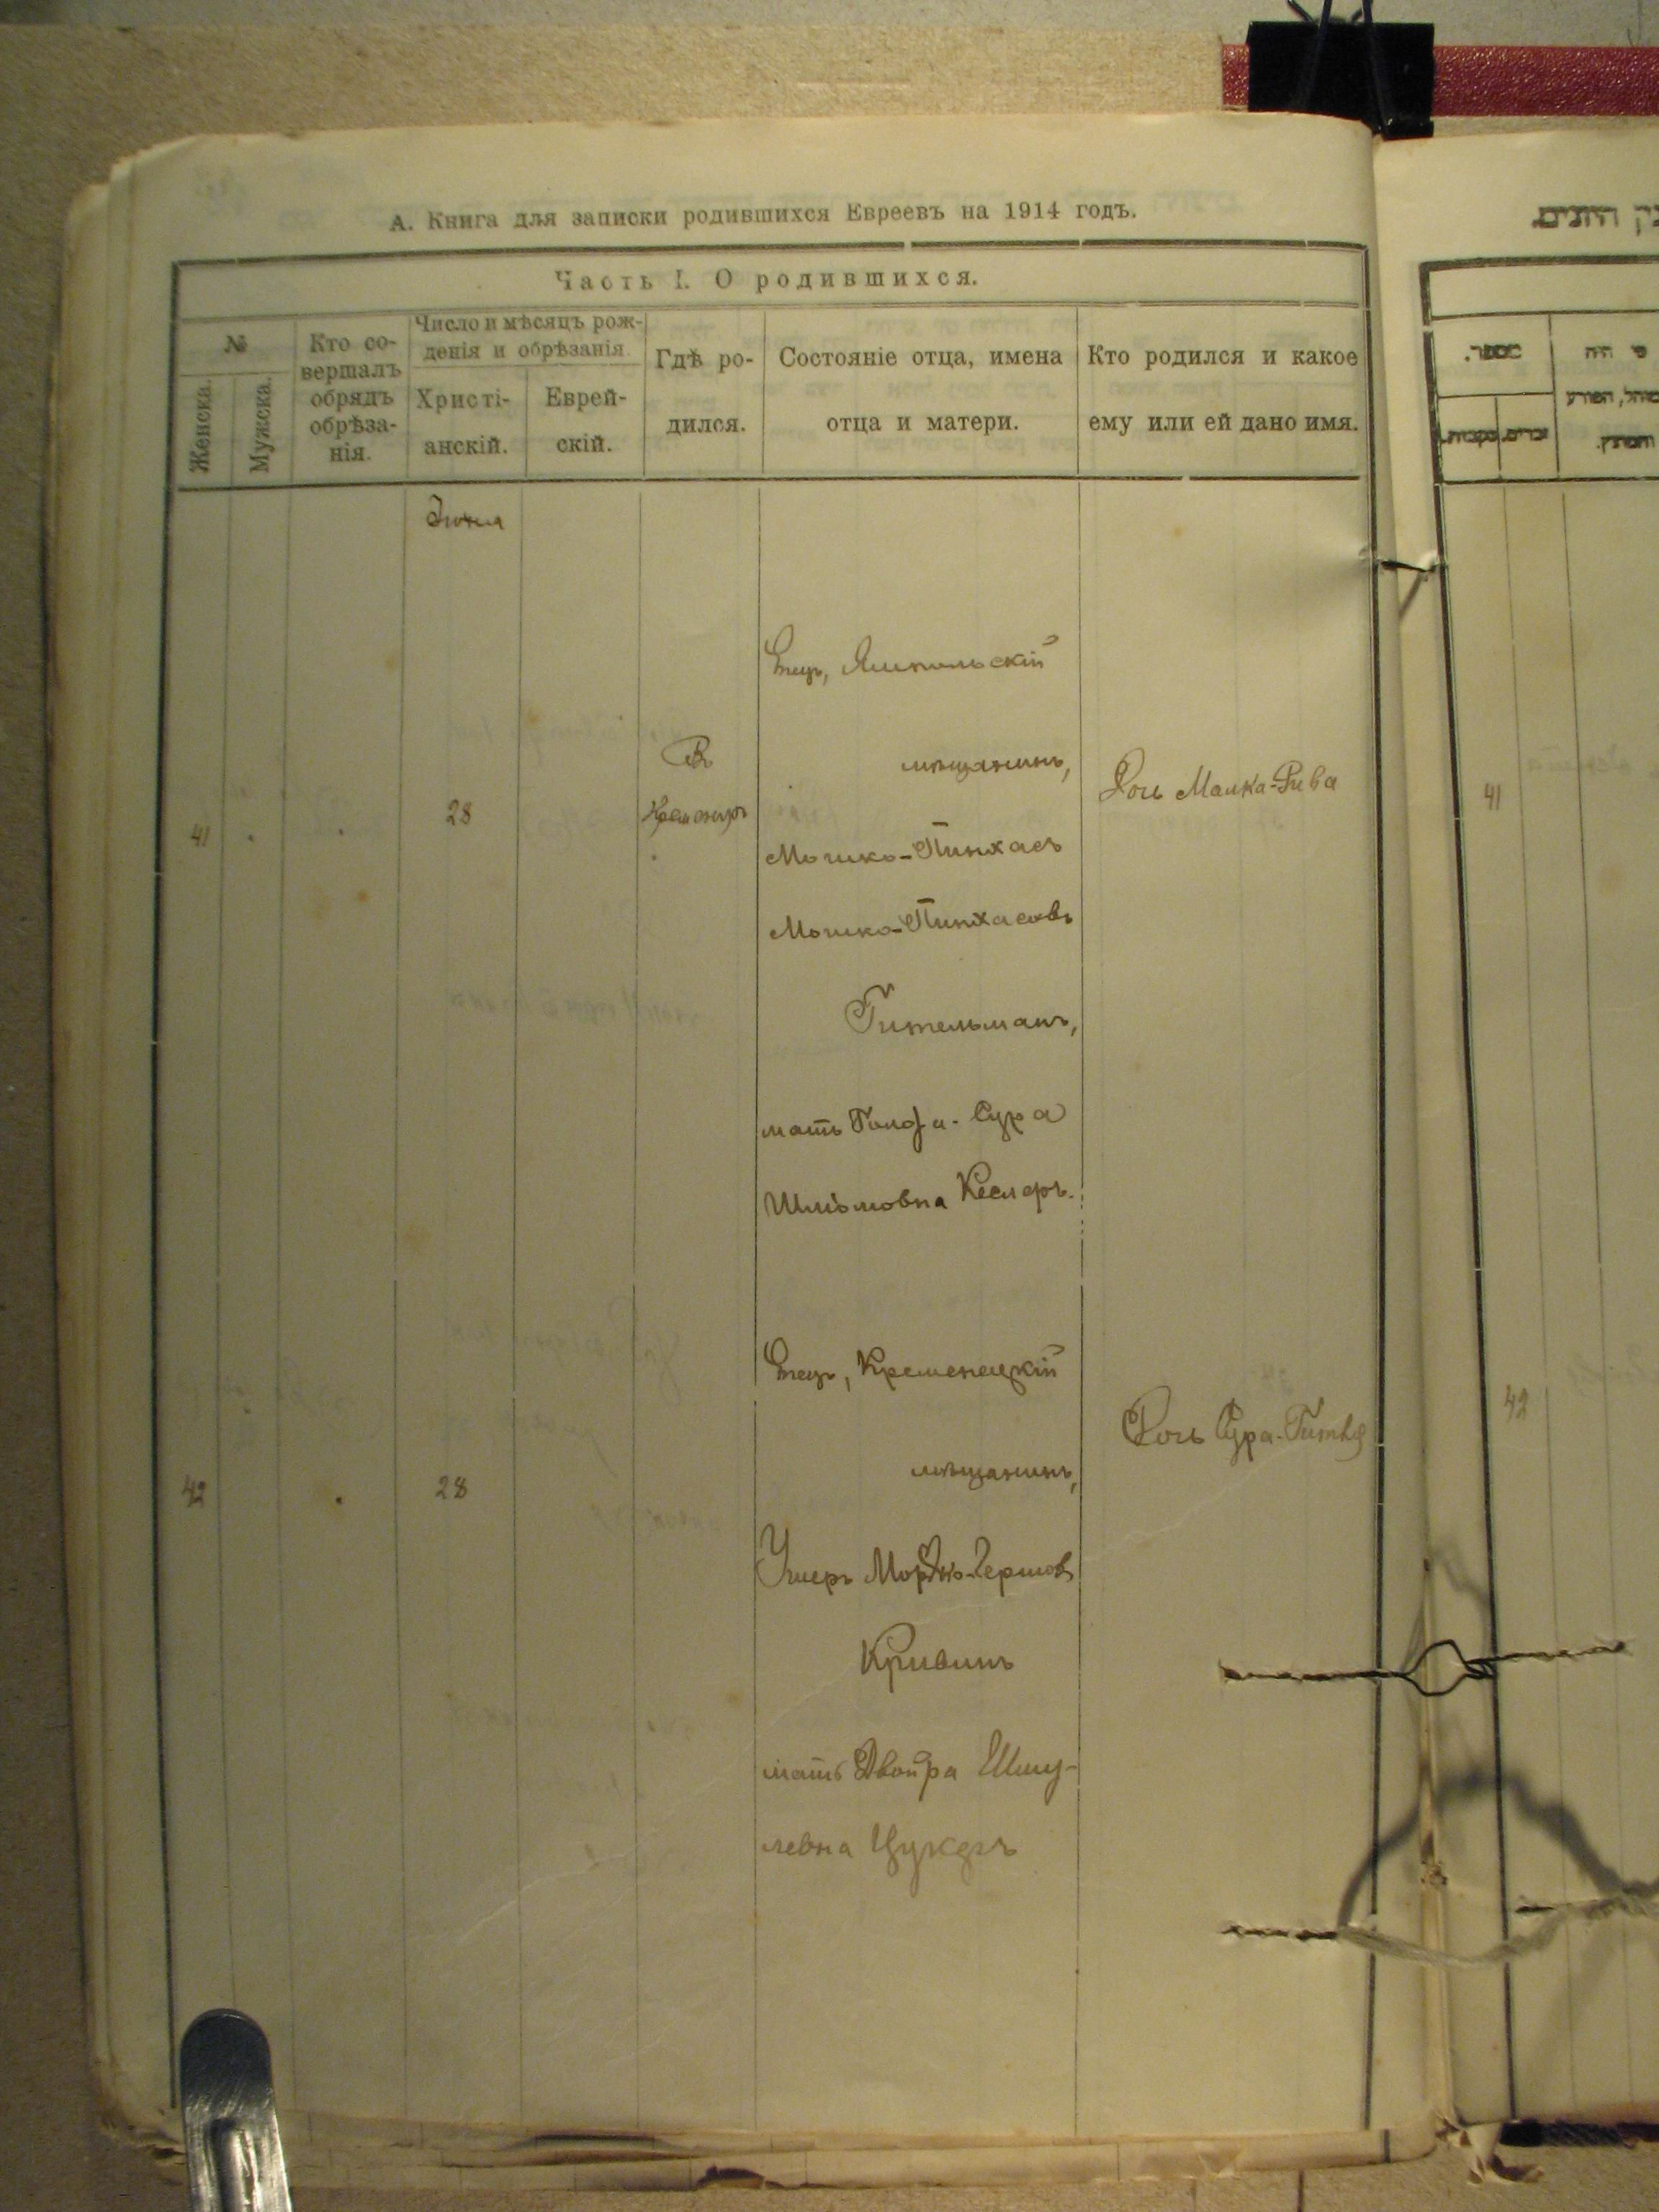 А. Книга для записки родившихся Евреевъ на 1914 годъ.
Часть I. О родившихся.
№
Женска.
Мужска.
Кто со-
вершалъ
обрядъ
обрѣза-
нія.
Число и мѣсяцъ рож-
денія и обрѣзанія.
Христі-
анскій.
Еврей-
скій.
Гдѣ ро-
дился.
Состояніе отца, имена
отца и матери.
Кто родился и какое
ему или ей дано имя.
41
28
Въ
Отецъ, Ямпольскій
мѣщанинъ,
Мошко-Пинхасъ
Мошко-Пинхасовъ
Гительманъ,
мать Сура
Шліомовна Кеслеръ.
Дочь Малка-Рива
42
28
Отецъ, Кременецкій
мѣщанинъ,
Ушеръ Мордко-Гершовъ
Кривинъ
мать Двойра Шму-
левна Цукеръ
Дочь Сура-Гитля
מספר.
מי היה
המוהל, הפורע
והמוצץ.
נקבות.
זכרים.
41
42